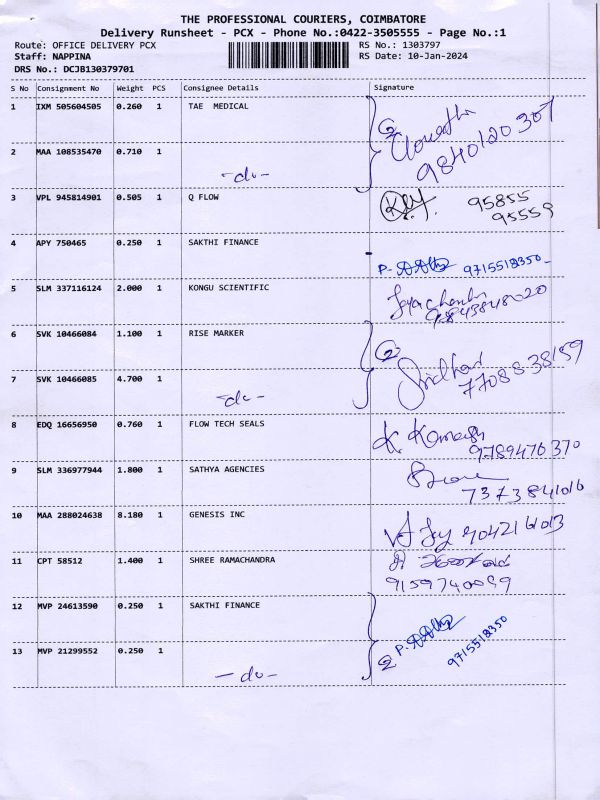 THE PROFESSIONAL COURIERS, COIMBATORE
Delivery Runsheet - PCX - Phone No.:0422-3505555 - Page No.:1
Route: OFFICE DELIVERY PCX RS No.: 1303797
Staff: NAPPINA RS Date: 10-Jan-2024
DRS No.: DCJB130379701
S No Consignment No Weight PCS Consignee Details Signature
1 IXM 505604505 0.260 1 TAE MEDICAL
2 MAA 108535470 0.710 1
-do- 9840120307
3 VPL 945814901 0.505 1 Q FLOW 95855
95559
4 APY 750465 0.250 1 SAKTHI FINANCE
9715518350-
5 SLM 337116124 2.000 1 KONGU SCIENTIFIC
Jeyachandran
9843848020
6 SVK 10466084 1.100 1 RISE MARKER
2
7 SVK 10466085 4.700 1 Sridhar
-do- 7708838159
8 EDQ 16656950 0.760 1 FLOW TECH SEALS
K. Kamesh
9789476370
9 SLM 336977944 1.800 1 SATHYA AGENCIES
7373841016
10 MAA 288024638 8.180 1 GENESIS INC
11 CPT 58512 1.400 1 SHREE RAMACHANDRA
9159740099
12 MVP 24613590 0.250 1 SAKTHI FINANCE
13 MVP 21299552 0.250 1 2 9715518350
-do-